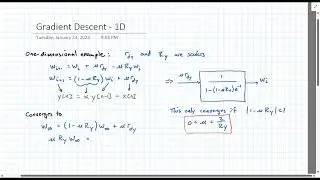 Gradient Descent - 1D
Tuesday, January 24, 2023 9:03 PM
One-dimensional example: r_dy and R_y are scalars
w_{i+1} = w_i + μ r_dy - μ R_y w_i
w_{i+1} = (1-μR_y) w_i + μ r_dy
y[n+1] = α y[n-1] + x[n]
μ r_dy → 1 / (1-(1-μR_y)z^{-1}) → w_i
This only converges if |1-μR_y|<1
0 < μ < 2/R_y
Converges to
w_∞ = (1-μR_y) w_∞ + μ r_dy
μ R_y w_∞ =